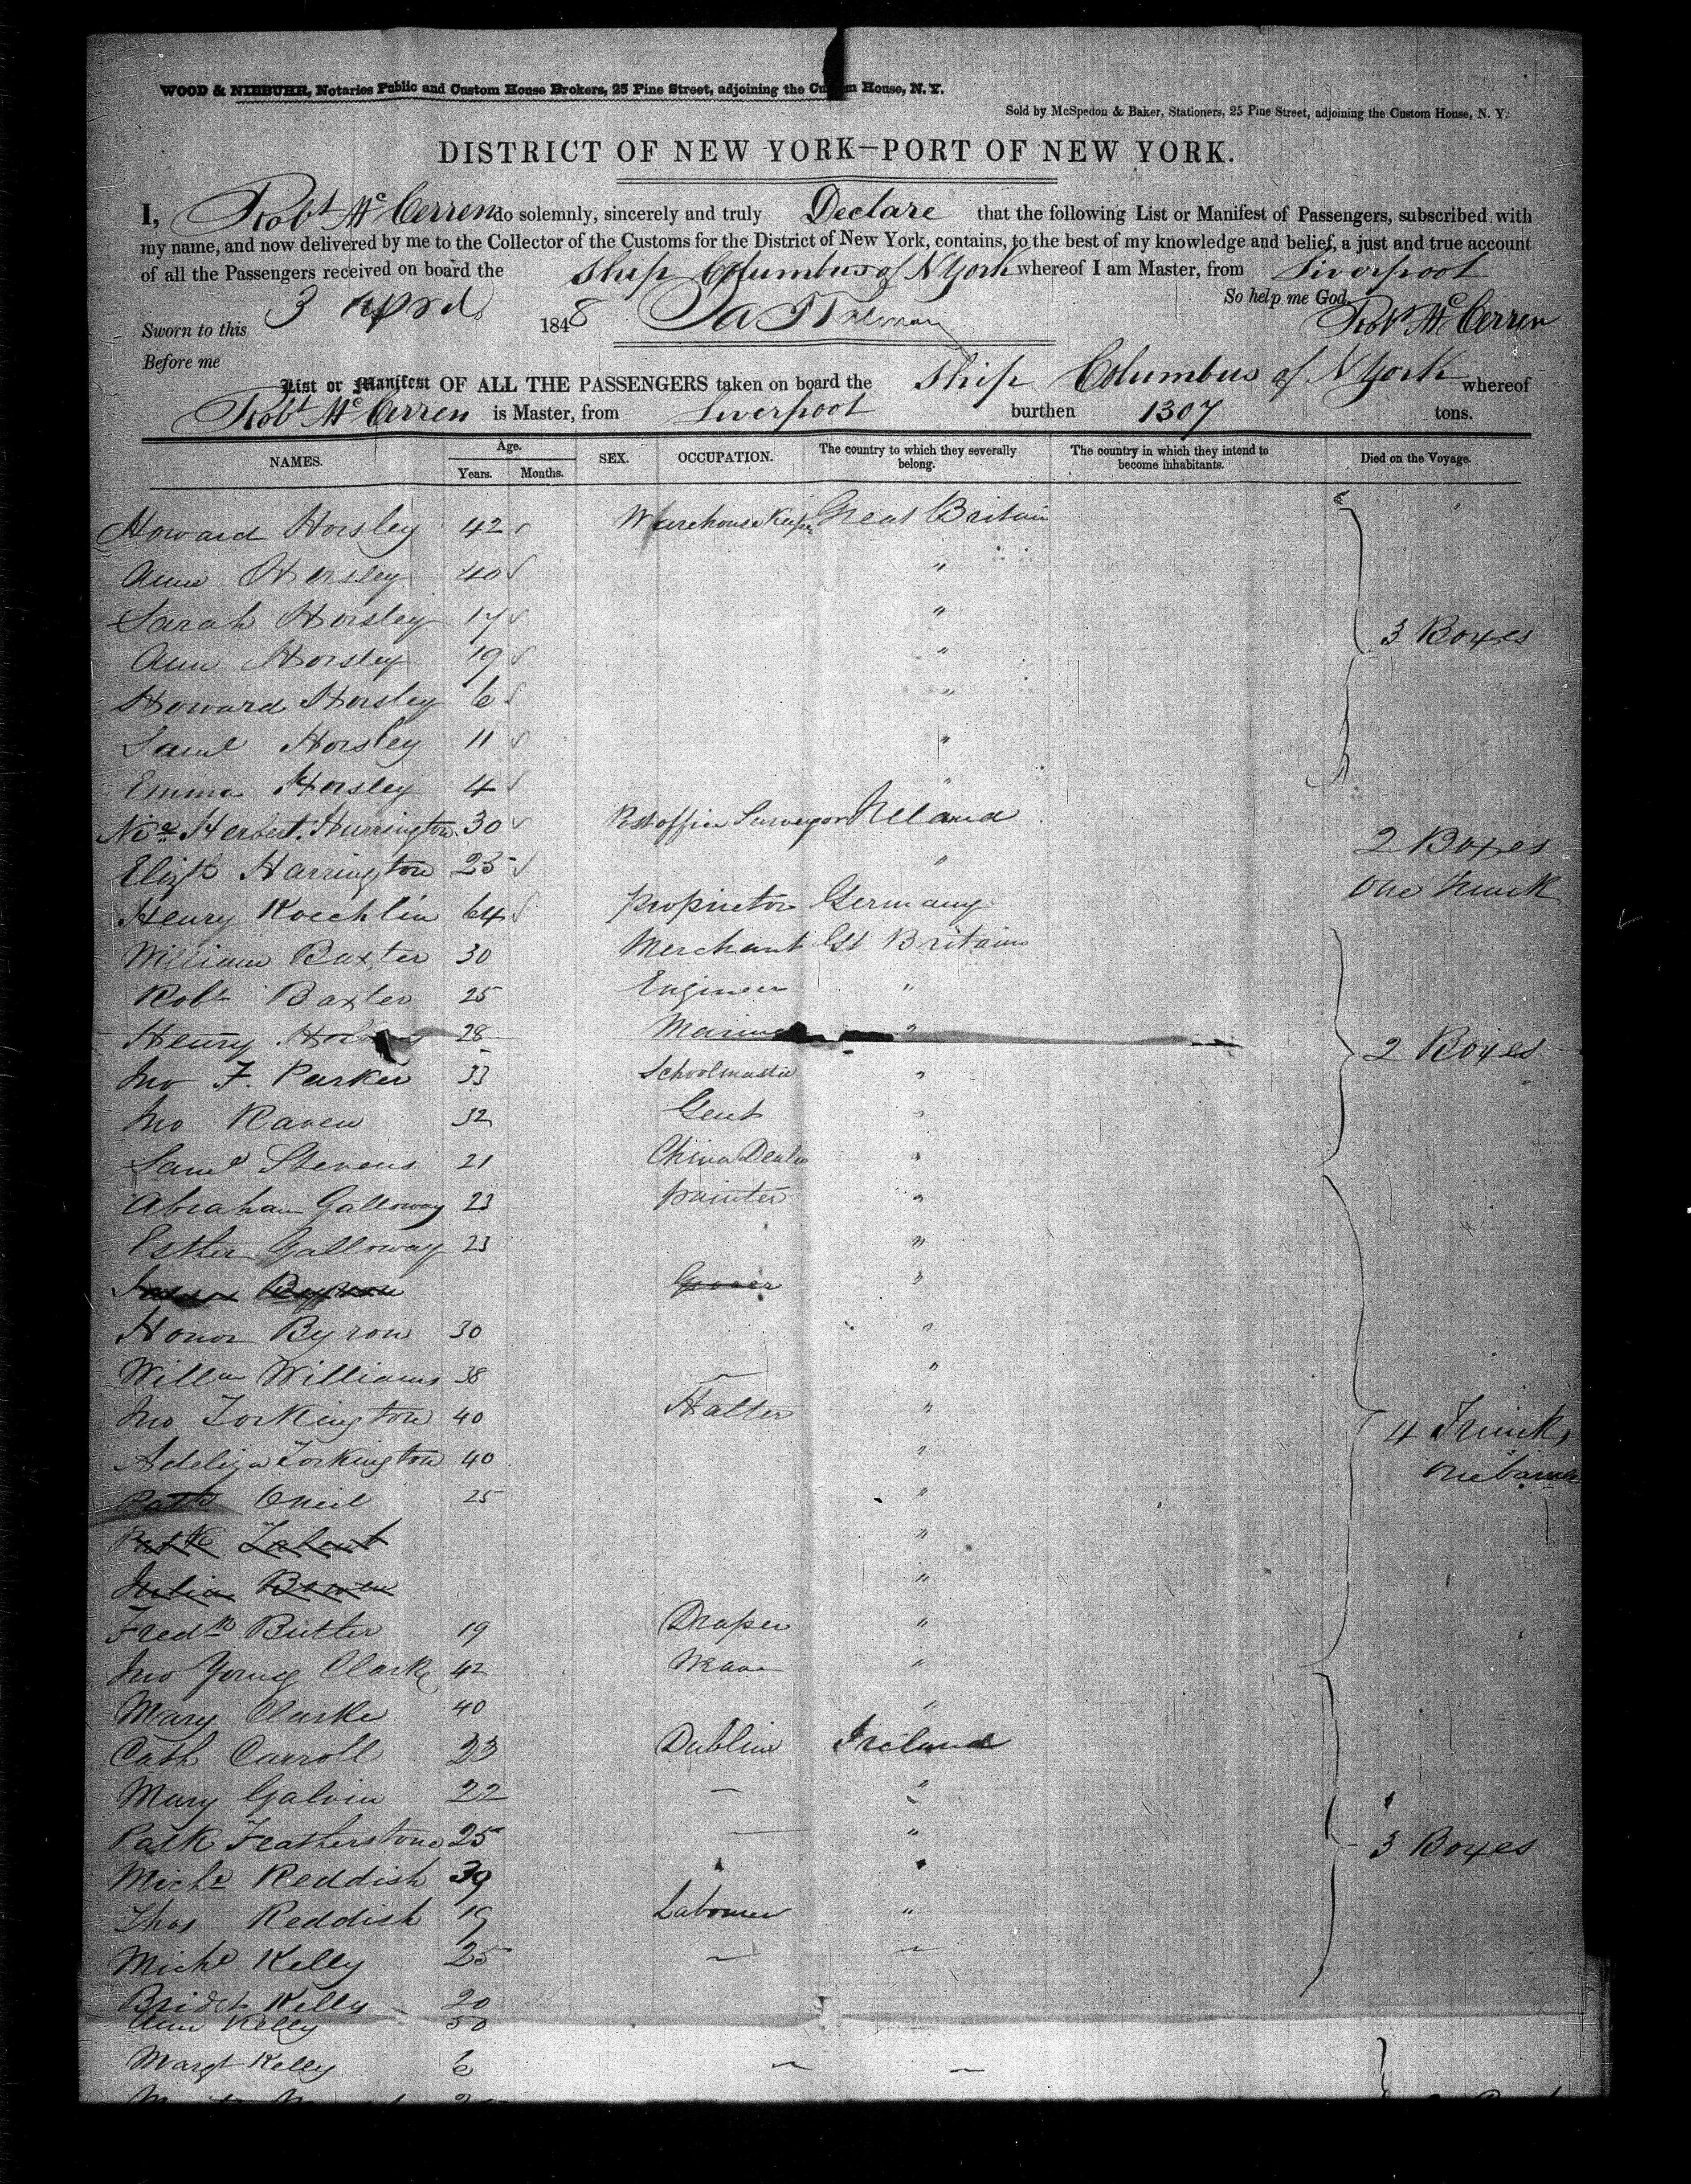 WOOD & NIEBUHR, Notaries Public and Custom House Brokers, 25 Pine Street, adjoining the Custom House, N. Y.
Sold by McSpedon & Baker, Stationers, 25 Pine Street, adjoining the Custom House, N. Y.
DISTRICT OF NEW YORK—PORT OF NEW YORK.
I, Robt McCerren do solemnly, sincerely and truly Declare that the following List or Manifest of Passengers, subscribed with
my name, and now delivered by me to the Collector of the Customs for the District of New York, contains, to the best of my knowledge and belief, a just and true account
of all the Passengers received on board the Ship Columbus of NYork whereof I am Master, from Liverpool
So help me God.
Sworn to this 3 April 1848 Robt McCerren
Before me
List or Manifest OF ALL THE PASSENGERS taken on board the Ship Columbus of NYork whereof
Robt McCerren is Master, from Liverpool burthen 1307 tons.
NAMES. Age. Years. Months. SEX. OCCUPATION. The country to which they severally belong. The country in which they intend to become inhabitants. Died on the Voyage.
Howard Horsley 42 Warehouse Keeper Great Britain
Ann Horsley 40 "
Sarah Horsley 17 " 3 Boxes
Ann Horsley 19 "
Howard Horsley 6 "
Saml Horsley 11 "
Emma Horsley 4 "
Herbert Hurrington 30 Post office Surveyor Ireland 2 Boxes
Elizth Harrington 25 " One Trunk
Henry Koechlin 64 Proprietor Germany
William Baxter 30 Merchant Gt Britain
Robt Baxter 25 Engineer "
Henry 28 "
Jno F. Parker 33 Schoolmaster " 2 Boxes
Jno Raven 32 Gent "
Saml Stevens 21 China Dealer "
Abraham Galloway 23 painter "
Esther Galloway 23 "
Grocer "
Honor Byron 30 "
Willm Williams 38 "
Jno Torkington 40 Hatter " 4 Trunks
Adeliza Torkington 40 "
Patk Oneil 25 "
Patk Talent "
Julia Bowen "
Fredk Butler 19 Draper "
Jno Young Clarke 42 "
Mary Clarke 40 "
Cath Carroll 23 Dublin Ireland
Mary Galvin 22 — "
Patk Featherstone 25 — " 3 Boxes
Michl Reddish 39 "
Thos Reddish 19 Labourer "
Michl Kelly 25 — —
Bridgt Kelly 20
Ann Kelly 50
Margt Kelly 6 — —